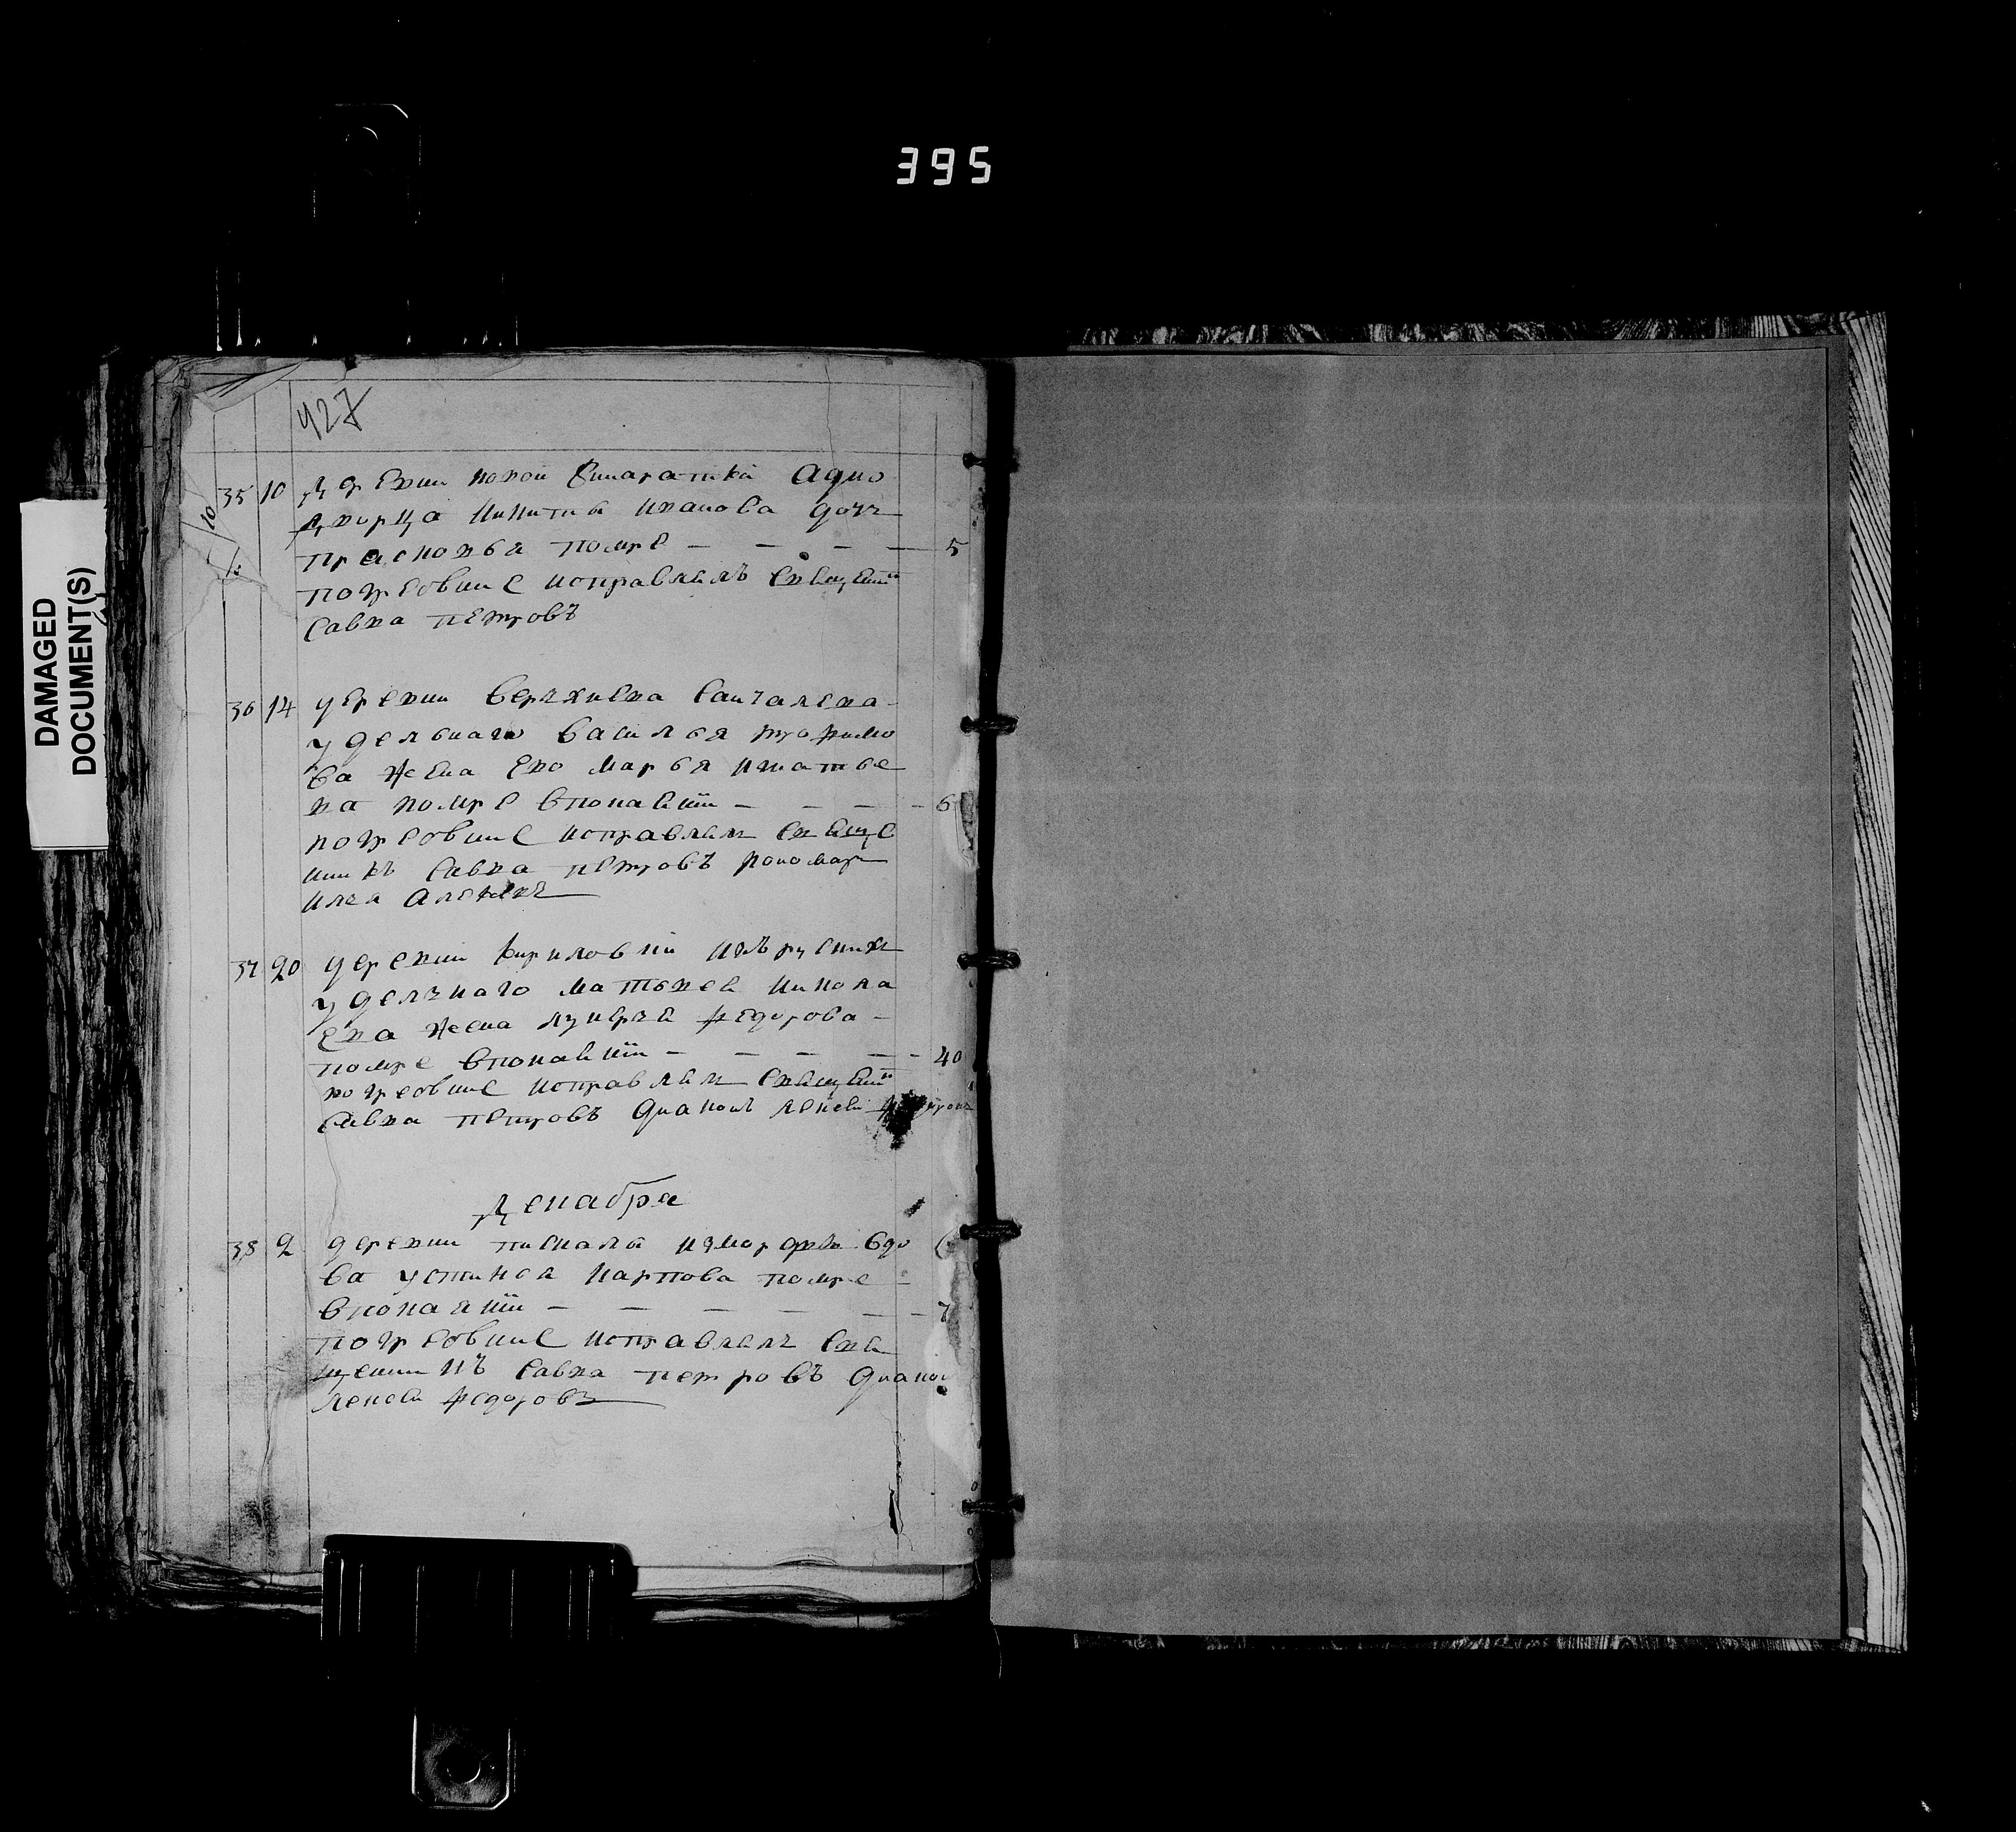 395
DAMAGED
DOCUMENT(S)
427
35 10 деревни новой адно
дворца Никиты иванова дочь
прасковья помре — — — — 5
погребение исправлялъ священ
савва петровъ
36 14 деревни верхнева
уделенаго василья трофимо
ва жена ево марья игнатье
ва помре впокаянии — — — — 6
погребение исправлялъ свяще
никъ савва петровъ пономарь
илья алексевъ
37 20 деревни кириловки
уделнаго матвея никола
ева жена лукеря федорова —
помре впокаянии — — — — 40
погребение исправлялъ священ
савва петровъ диаконъ алексей
декабря
38 2 деревни вдо
ва устинья карпова помре —
впокаянии — — — — — 7
погребение исправлялъ свя
щенникъ савва петровъ диакон
алексей федоровъ